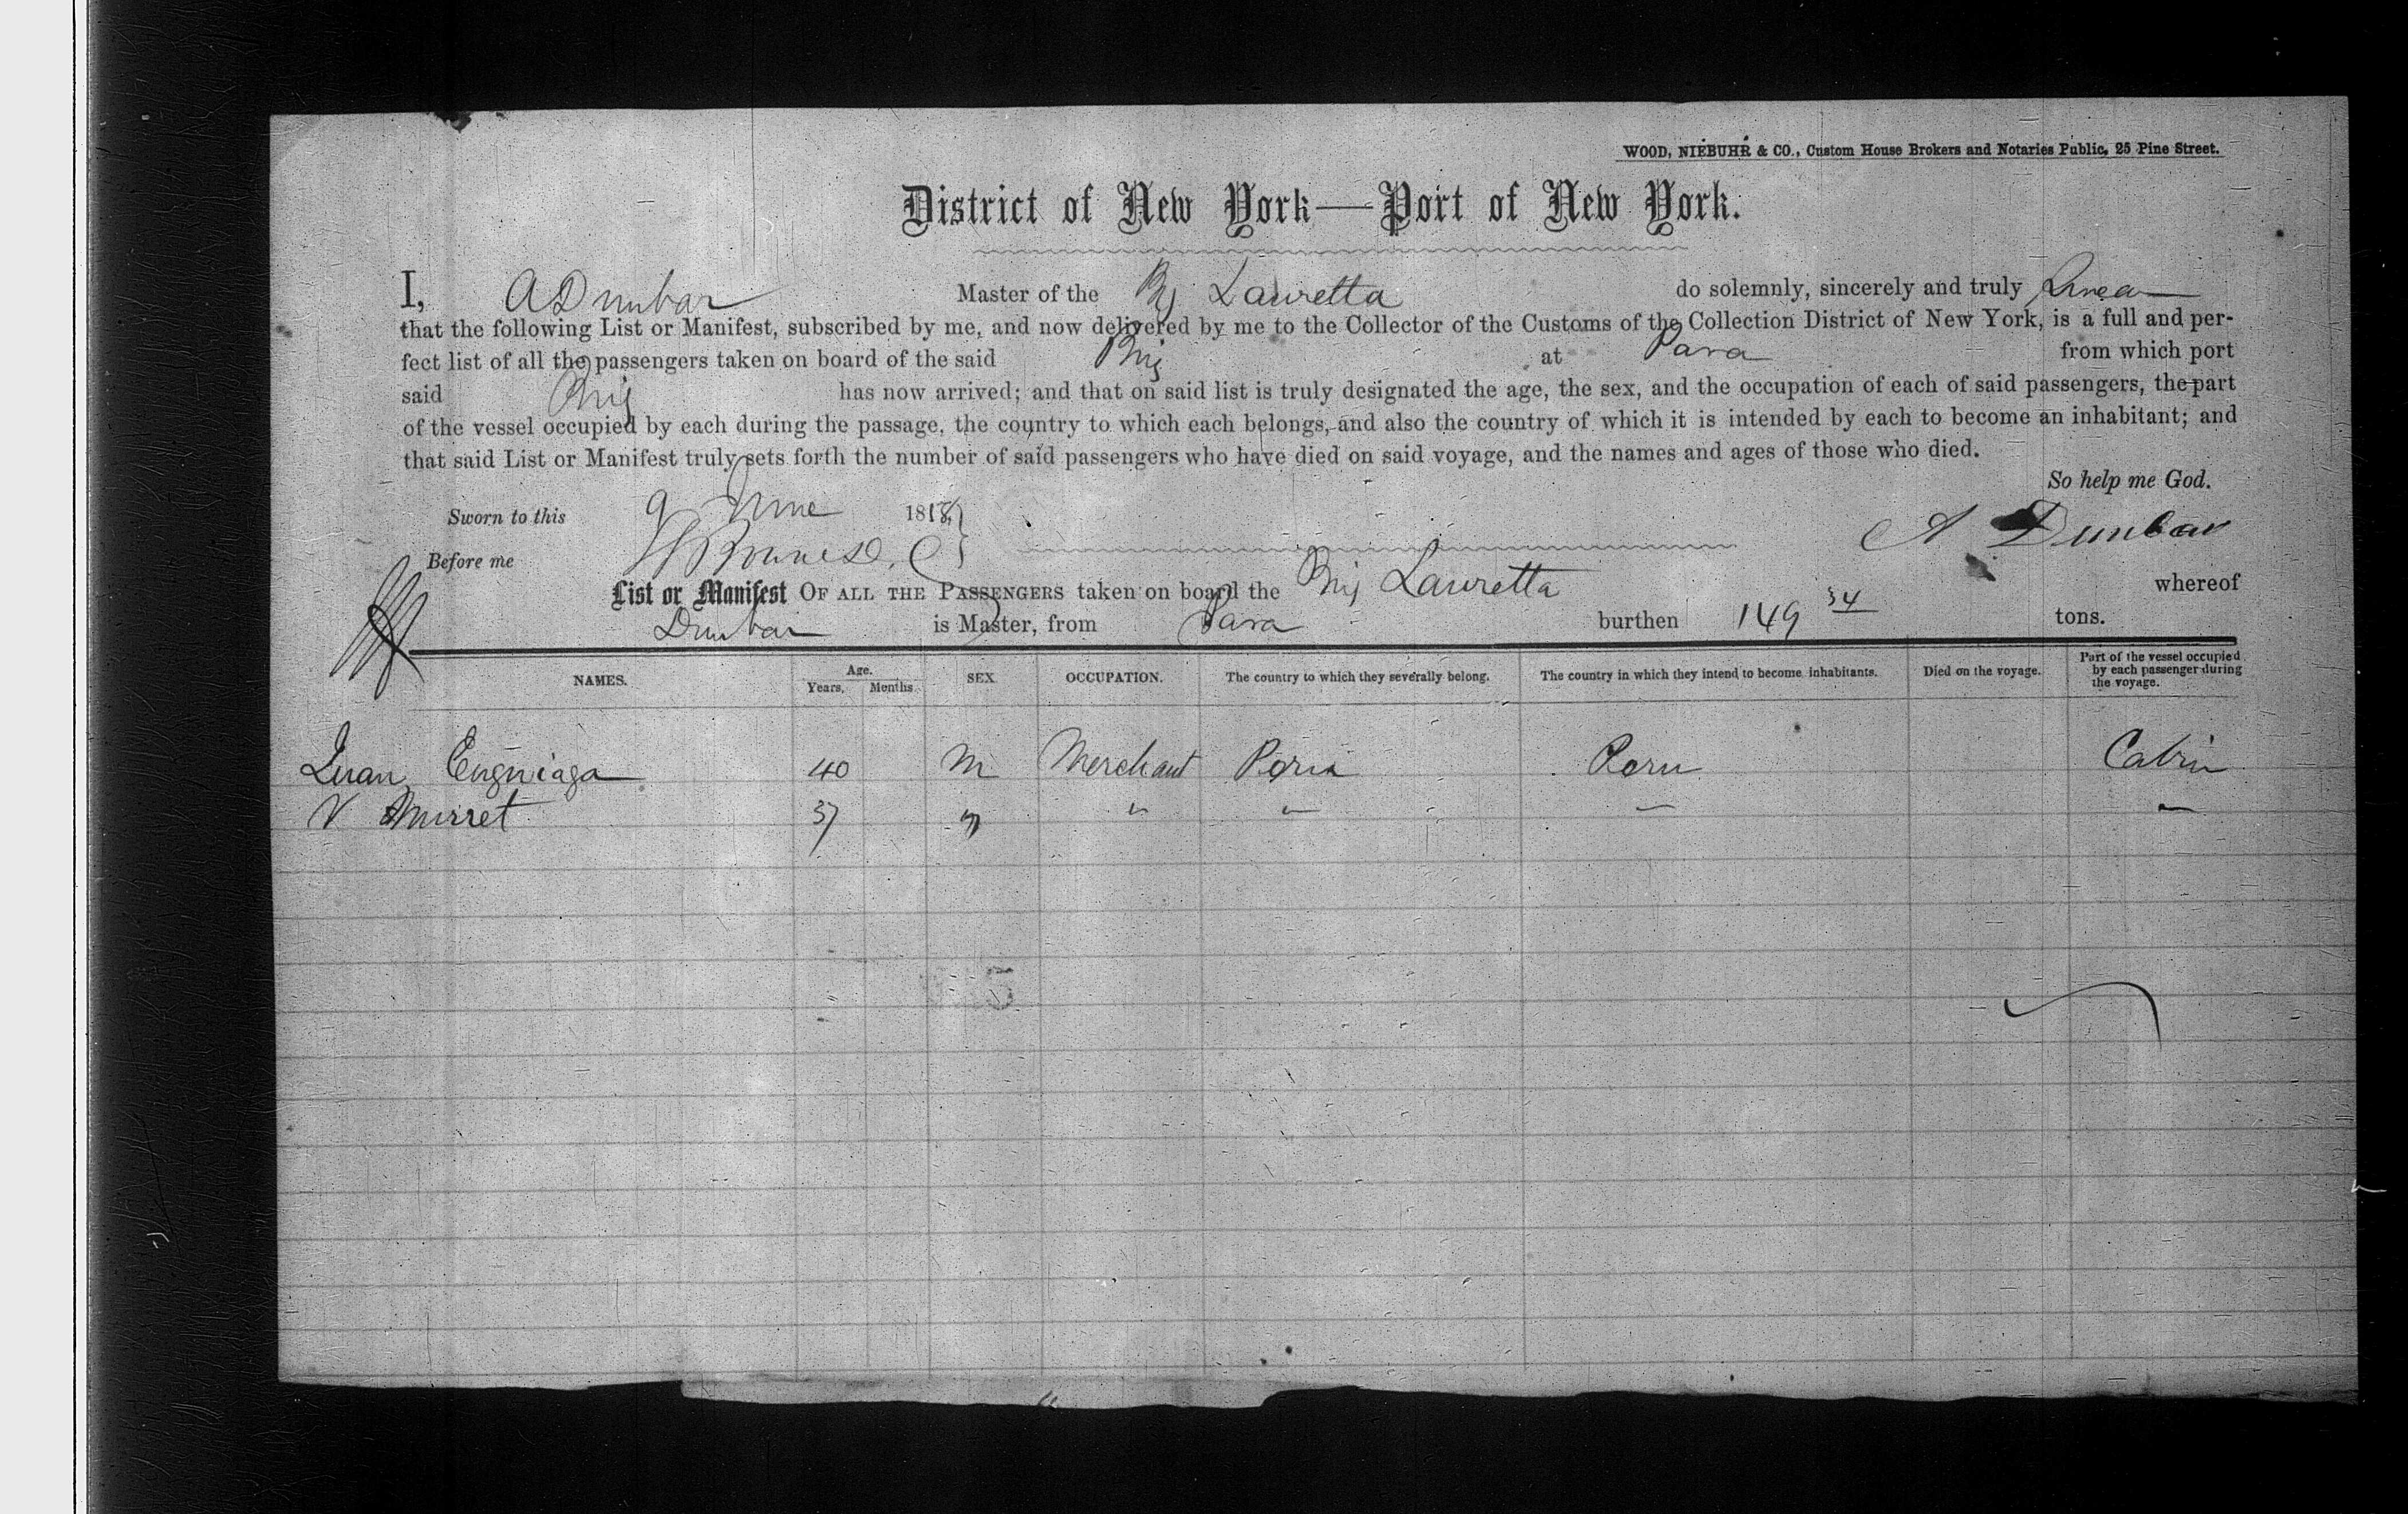 WOOD, NIEBUHR & CO., Custom House Brokers and Notaries Public, 25 Pine Street.
District of New York—Port of New York.
I, A Dunbar Master of the Brig Lauretta do solemnly, sincerely and truly swear
that the following List or Manifest, subscribed by me, and now delivered by me to the Collector of the Customs of the Collection District of New York, is a full and per-
fect list of all the passengers taken on board of the said Brig at Para from which port
said Brig has now arrived; and that on said list is truly designated the age, the sex, and the occupation of each of said passengers, the part
of the vessel occupied by each during the passage, the country to which each belongs, and also the country of which it is intended by each to become an inhabitant; and
that said List or Manifest truly sets forth the number of said passengers who have died on said voyage, and the names and ages of those who died.
So help me God.
Sworn to this 9 June 18
A Dunbar
Before me
List or Manifest OF ALL THE PASSENGERS taken on board the Brig Lauretta whereof
Dunbar is Master, from Para burthen 149 34 tons.
NAMES. Age. Years. Months. SEX OCCUPATION. The country to which they severally belong. The country in which they intend to become inhabitants. Died on the voyage. Part of the vessel occupied by each passenger during the voyage.
Juan 40 M Merchant Peru Peru Cabin
V Murret 37 " " " " "